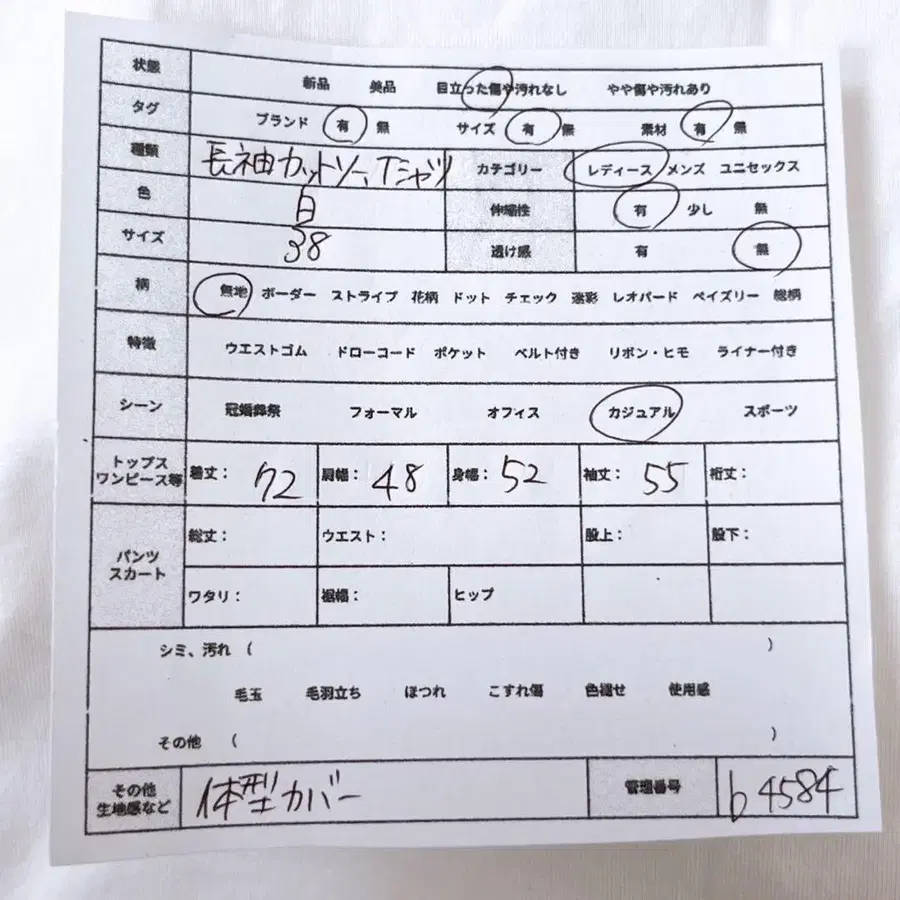 状態 新品 美品 目立った傷や汚れなし やや傷や汚れあり
タグ ブランド 有 無 サイズ 有 無 素材 有 無
種類 長袖カットソー、Tシャツ カテゴリー レディース メンズ ユニセックス
色 白 伸縮性 有 少し 無
サイズ 38 透け感 有 無
柄 無地 ボーダー ストライプ 花柄 ドット チェック 迷彩 レオパード ペイズリー 総柄
特徴 ウエストゴム ドローコード ポケット ベルト付き リボン・ヒモ ライナー付き
シーン 冠婚葬祭 フォーマル オフィス カジュアル スポーツ
トップス
ワンピース等 着丈： 72 肩幅： 48 身幅： 52 袖丈： 55 裄丈：
パンツ
スカート 総丈： ウエスト： 股上： 股下：
ワタリ： 裾幅： ヒップ
シミ、汚れ （ ）
毛玉 毛羽立ち ほつれ こすれ傷 色褪せ 使用感
その他 （ ）
その他
生地感など 体型カバー 管理番号 b4584